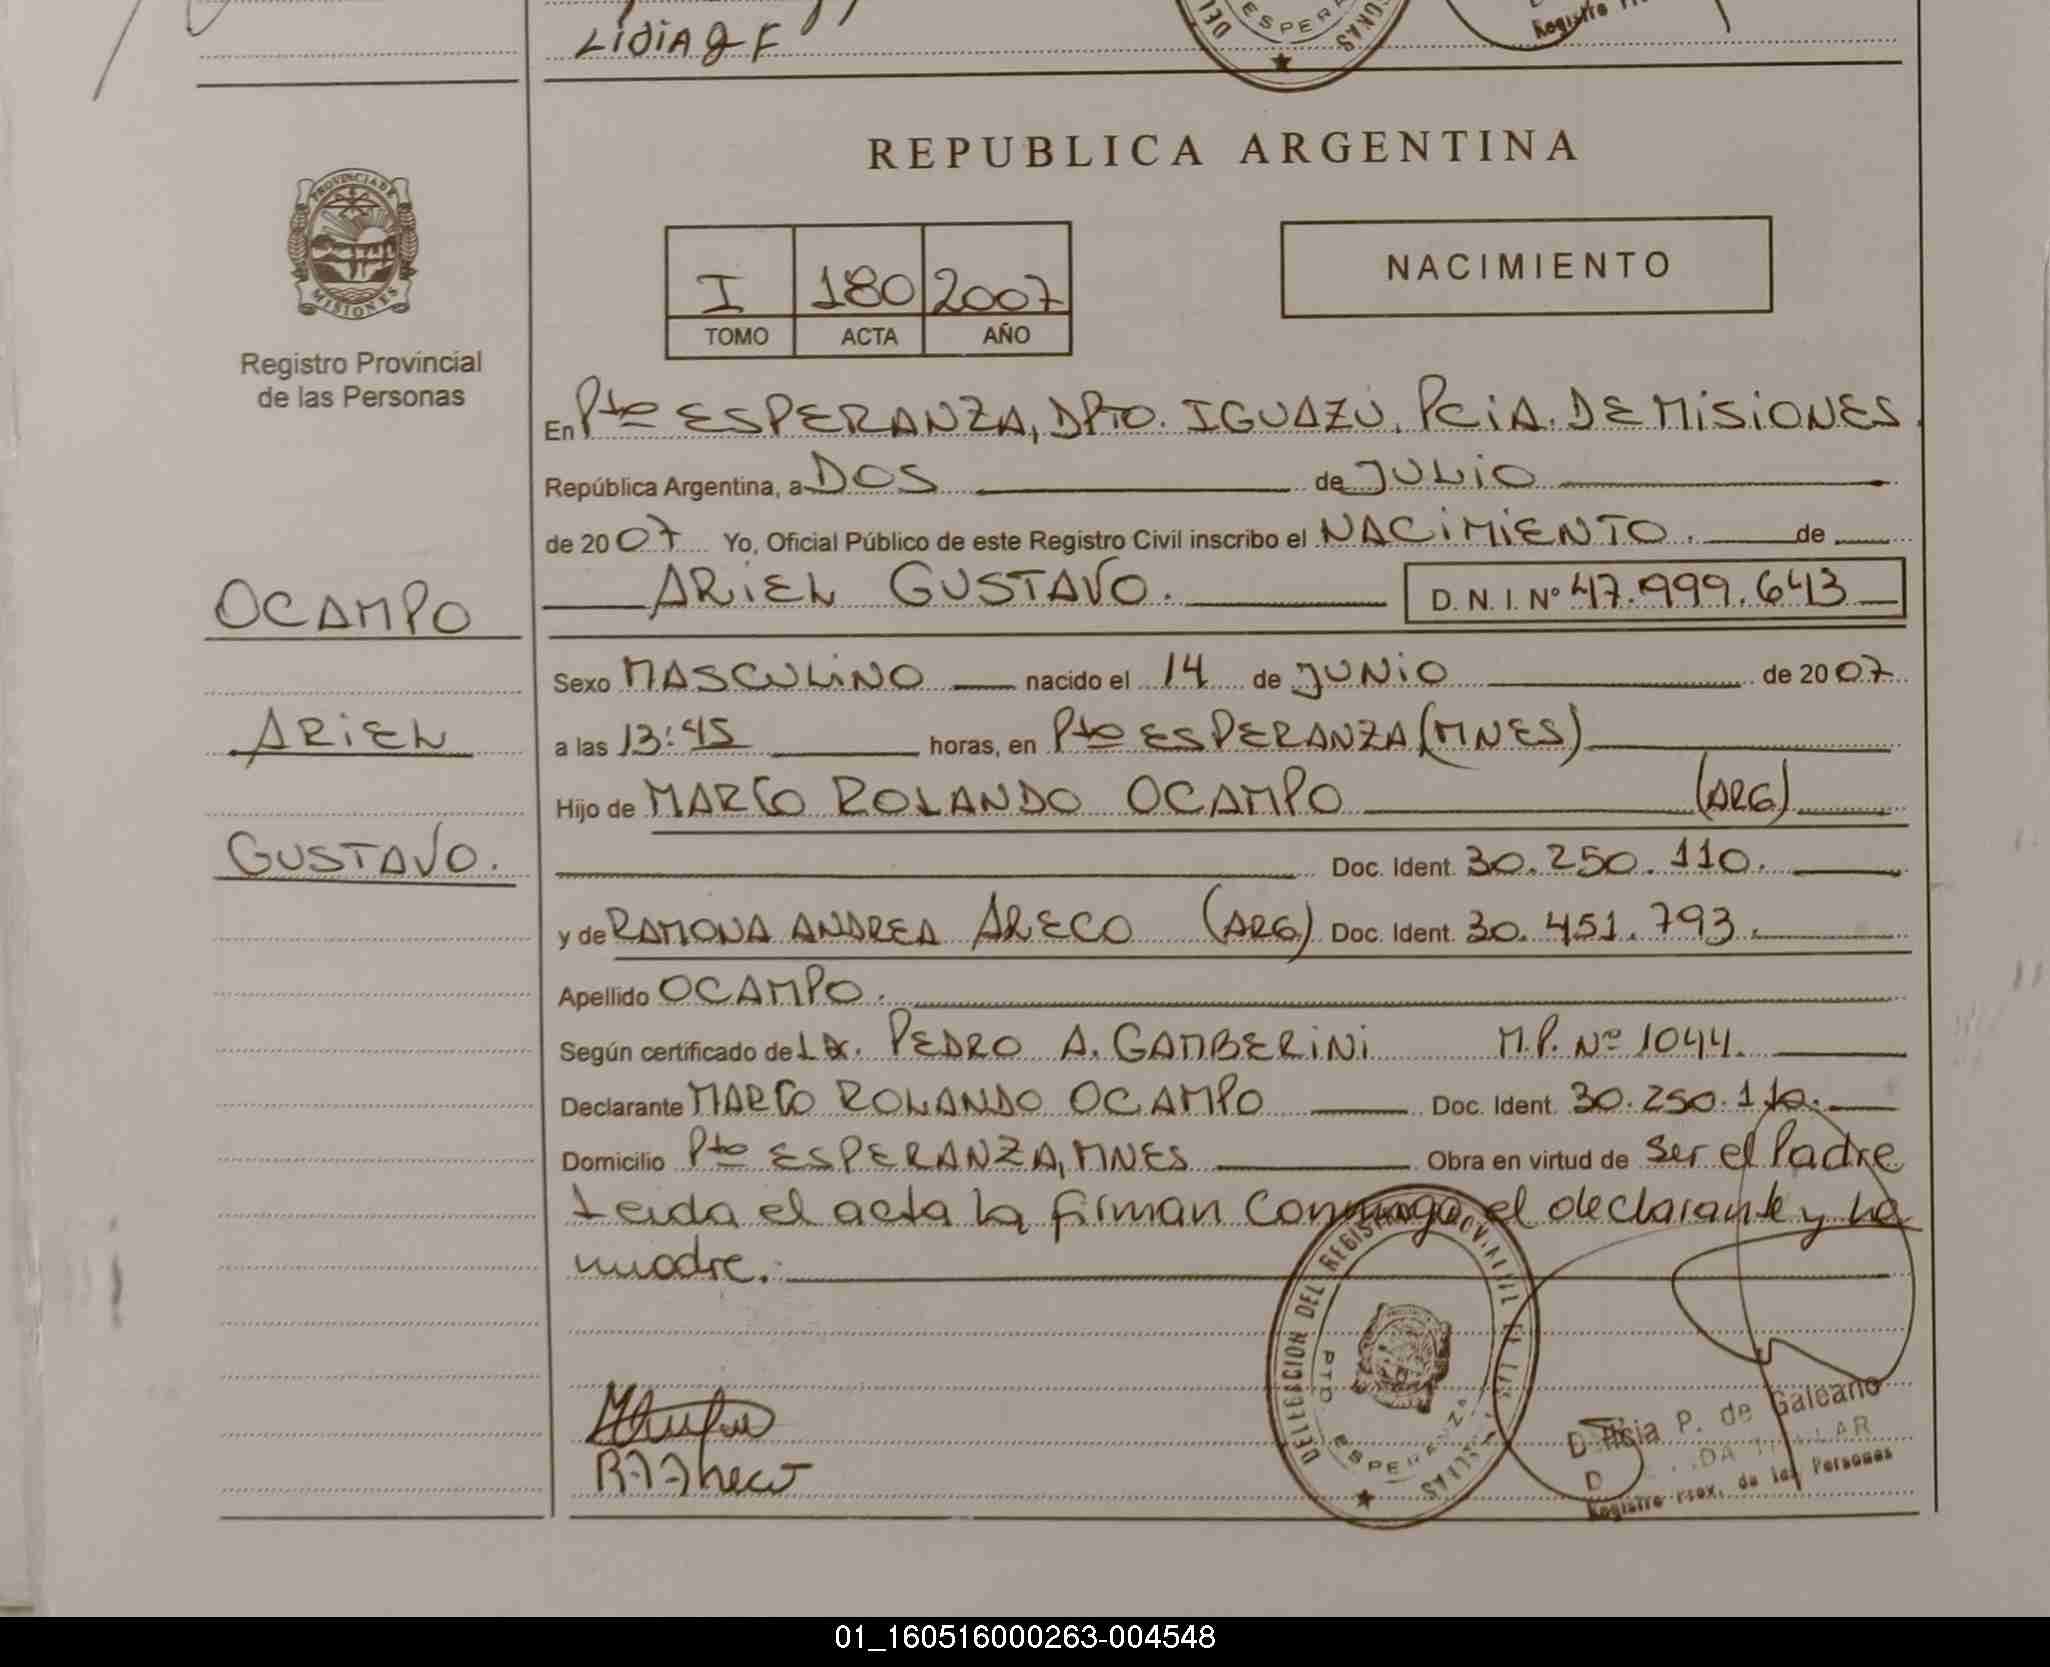 Lidia g F
REPUBLICA ARGENTINA
PROVINCIA DE
MISIONES
Registro Provincial
de las Personas
I 180 2007
TOMO ACTA AÑO
NACIMIENTO
En Pto ESPERANZA, DPTO. IGUAZU. PCIA. DE MISIONES
República Argentina, a DOS de JULIO
de 2007 Yo, Oficial Público de este Registro Civil inscribo el NACIMIENTO. de
ARIEL GUSTAVO. D. N. I. Nº 47.999.643
OCAMPO
ARIEL
GUSTAVO.
Sexo MASCULINO nacido el 14 de JUNIO de 2007
a las 13:45 horas, en Pto ESPERANZA (MNES)
Hijo de MARCO ROLANDO OCAMPO (ARG)
Doc. Ident. 30.250.110.
y de RAMONA ANDREA ARECO (ARG) Doc. Ident. 30.451.793.
Apellido OCAMPO.
Según certificado de PEDRO A. GAMBERINI M.P. Nº 1044.
Declarante MARCO ROLANDO OCAMPO Doc. Ident. 30.250.110.
Domicilio Pto ESPERANZA, MNES Obra en virtud de Ser el Padre
Leida el acta la firman Conmigo el declarante y la
madre.
DELEGACION DEL REGISTRO
PTO ESPERANZA
P. de Galeano
de las Personas
01_160516000263-004548